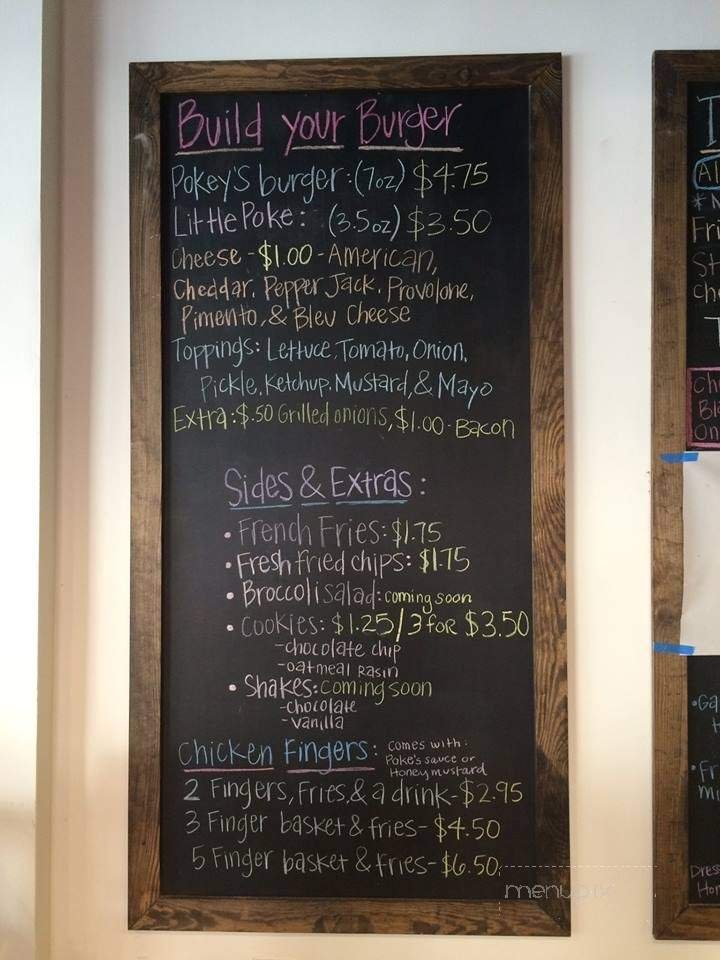 Build your Burger
Pokey's burger: (7oz) $4.75
Little Poke: (3.5oz) $3.50
Cheese - $1.00 - American,
Cheddar, Pepper Jack, Provolone,
Pimento, & Bleu Cheese
Toppings: Lettuce, Tomato, Onion,
Pickle, Ketchup, Mustard, & Mayo
Extra: $.50 Grilled onions, $1.00 - Bacon
Sides & Extras:
• French Fries: $1.75
• Fresh fried chips: $1.75
• Broccoli salad: coming soon
• Cookies: $1.25/3 for $3.50
- chocolate chip
- oatmeal Rasin
• Shakes: coming soon
- chocolate
- vanilla
Chicken Fingers: comes with:
Poke's sauce or
Honey mustard
2 Fingers, Fries, & a drink - $2.95
3 Finger basket & fries - $4.50
5 Finger basket & fries - $6.50
menupix